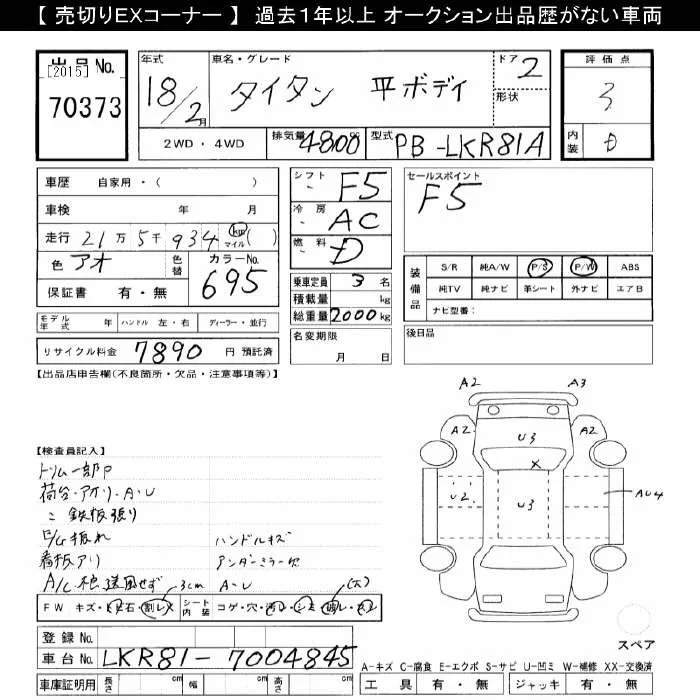 【 売切りEXコーナー 】 過去１年以上 オークション出品歴がない車両
出品No.
[2015]
70373
年式 18/2月
車名・グレード タイタン 平ボディ
ドア 2
形状
2WD ・ 4WD
排気量 4800 cc
型式 PB-LKR81A
評価点 3
内装 D
車歴 自家用・( )
車検 年 月
走行 21万 5千 934 km マイル ( )
色 アオ
色替
カラーNo. 695
保証書 有・無
シフト F5
冷房 AC
燃料 D
セールスポイント
F5
乗車定員 3 名
積載量 kg
総重量 2000 kg
装備品
S/R 純A/W P/S P/W ABS
純TV 純ナビ 革シート 外ナビ エアB
ナビ型番：
モデル年式 年 ハンドル 左・右 ディーラー・並行
名変期限
月 日
後日品
リサイクル料金 7890 円 預託済
【出品店申告欄(不良箇所・欠品・注意事項等)】
A2 A3
A2 U3 A2
X
U2 U3 AU4
【検査員記入】
トリム一部P
荷台・アオリ・A・U
鉄板張り
ハンドルキズ
看板アリ
A・U
3cm
(大)
FW キズ・飛石・割レ シート内装 コゲ・穴・
登録No.
車台No. LKR81-7004845
車庫証明用 長さ cm 幅 cm 高さ cm
スペア
A-キズ C-腐食 E-エクボ S-サビ U-凹ミ W-補修 XX-交換済
工具 有・無 ジャッキ 有・無